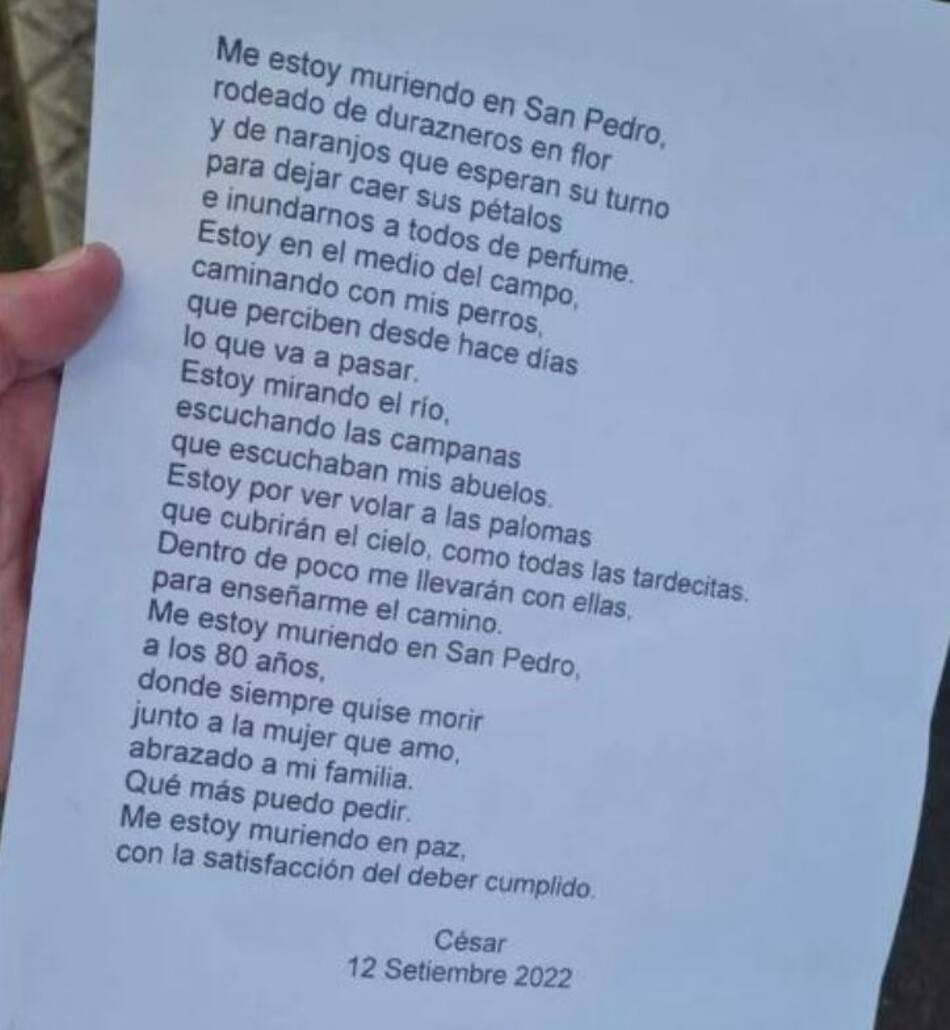 Me estoy muriendo en San Pedro,
rodeado de durazneros en flor
y de naranjos que esperan su turno
para dejar caer sus pétalos
e inundarnos a todos de perfume.
Estoy en el medio del campo,
caminando con mis perros,
que perciben desde hace días
lo que va a pasar.
Estoy mirando el río,
escuchando las campanas
que escuchaban mis abuelos.
Estoy por ver volar a las palomas
que cubrirán el cielo, como todas las tardecitas.
Dentro de poco me llevarán con ellas,
para enseñarme el camino.
Me estoy muriendo en San Pedro,
a los 80 años,
donde siempre quise morir
junto a la mujer que amo,
abrazado a mi familia.
Qué más puedo pedir.
Me estoy muriendo en paz,
con la satisfacción del deber cumplido.
César
12 Setiembre 2022